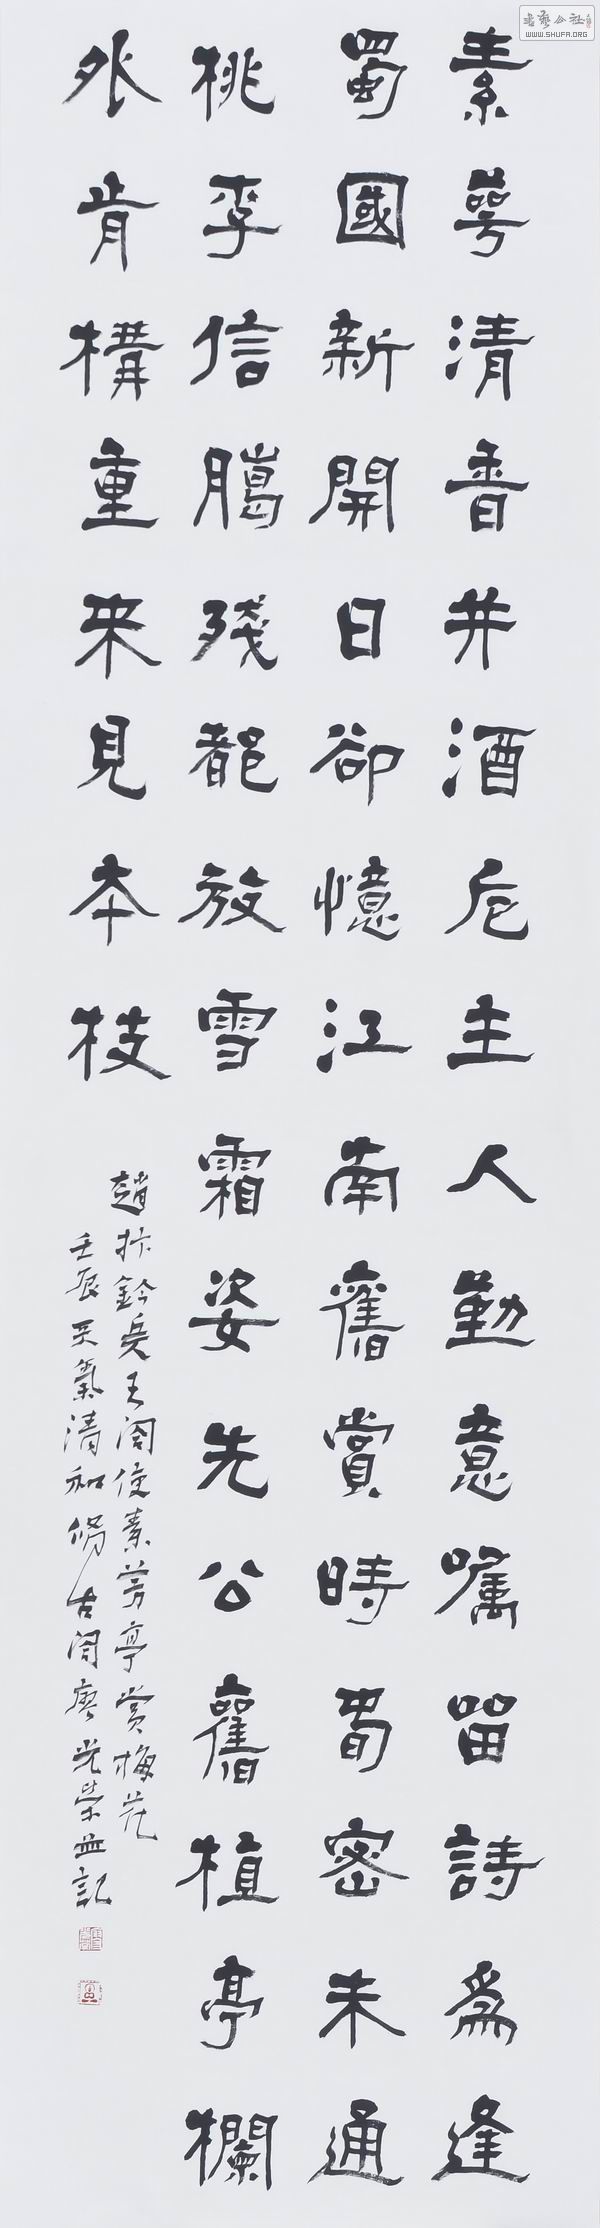 素萼清香并酒卮主人勤意嘱留詩為逢
蜀國新開日卻憶江南舊賞時密未通
桃李信臘殘都放雪霜姿先公舊植亭欄
外肯構重來見本枝
趙抃鈐兵王閣使素芳亭賞梅花
壬辰天氣清和古閣光榮並記
書藝公社
WWW.SHUFA.ORG